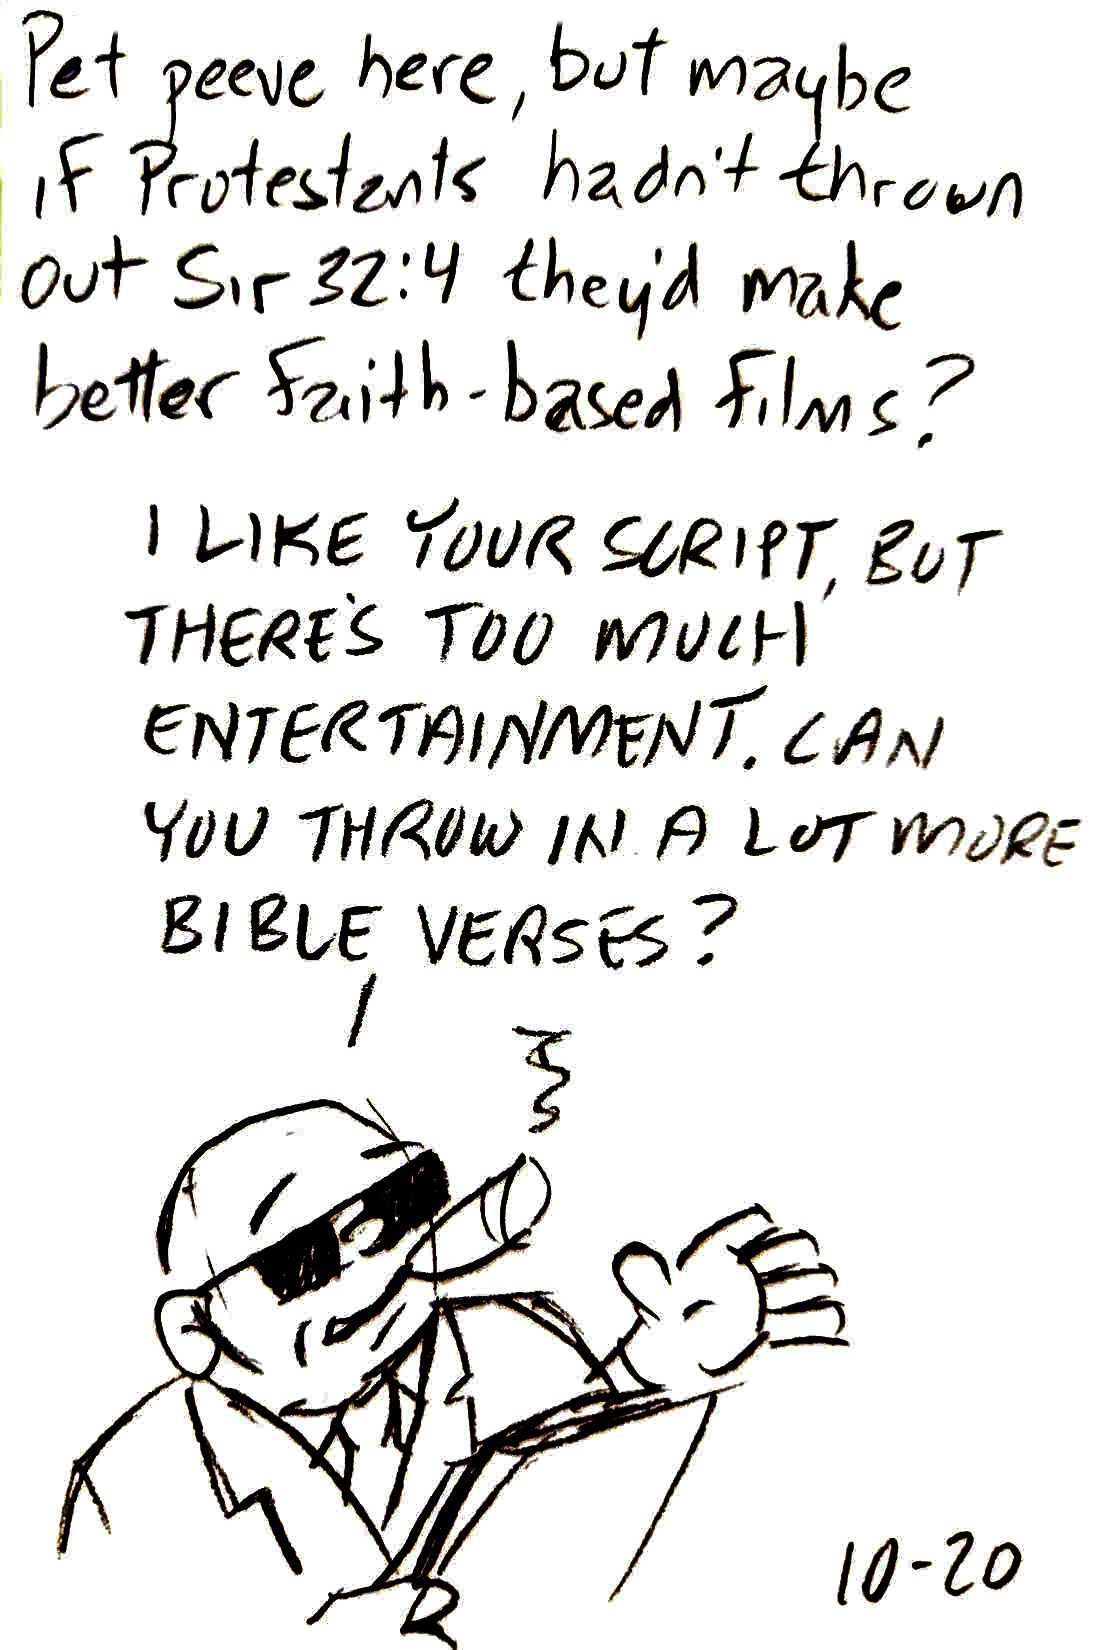 Pet peeve here, but maybe
if Protestants hadn't thrown
out Sir 32:4 they'd make
better faith-based films?
I LIKE YOUR SCRIPT, BUT
THERE'S TOO MUCH
ENTERTAINMENT. CAN
YOU THROW IN A LOT MORE
BIBLE VERSES?
10-20